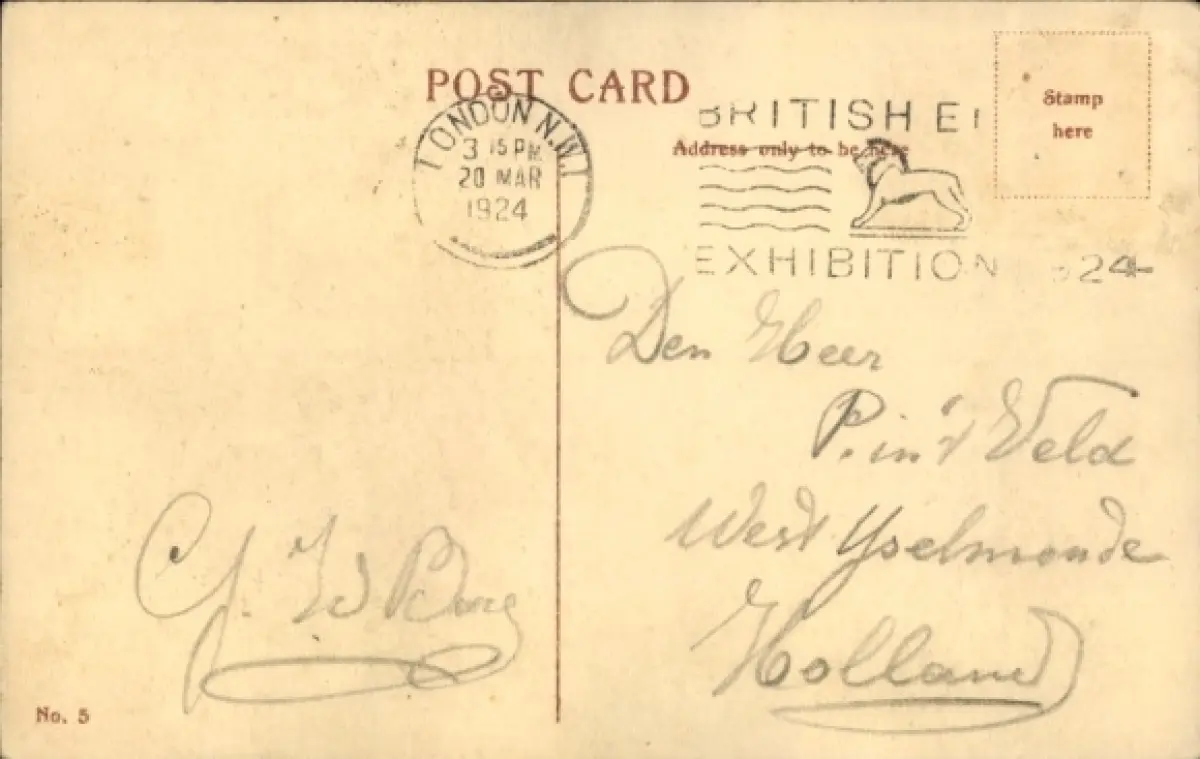 POST CARD
LONDON N.W.1
3 15 PM
20 MAR
1924
BRITISH E
EXHIBITION 24
Address only to be here
Stamp
here
Den Heer
P. in 't Veld
West Yselmonde
Holland
No. 5